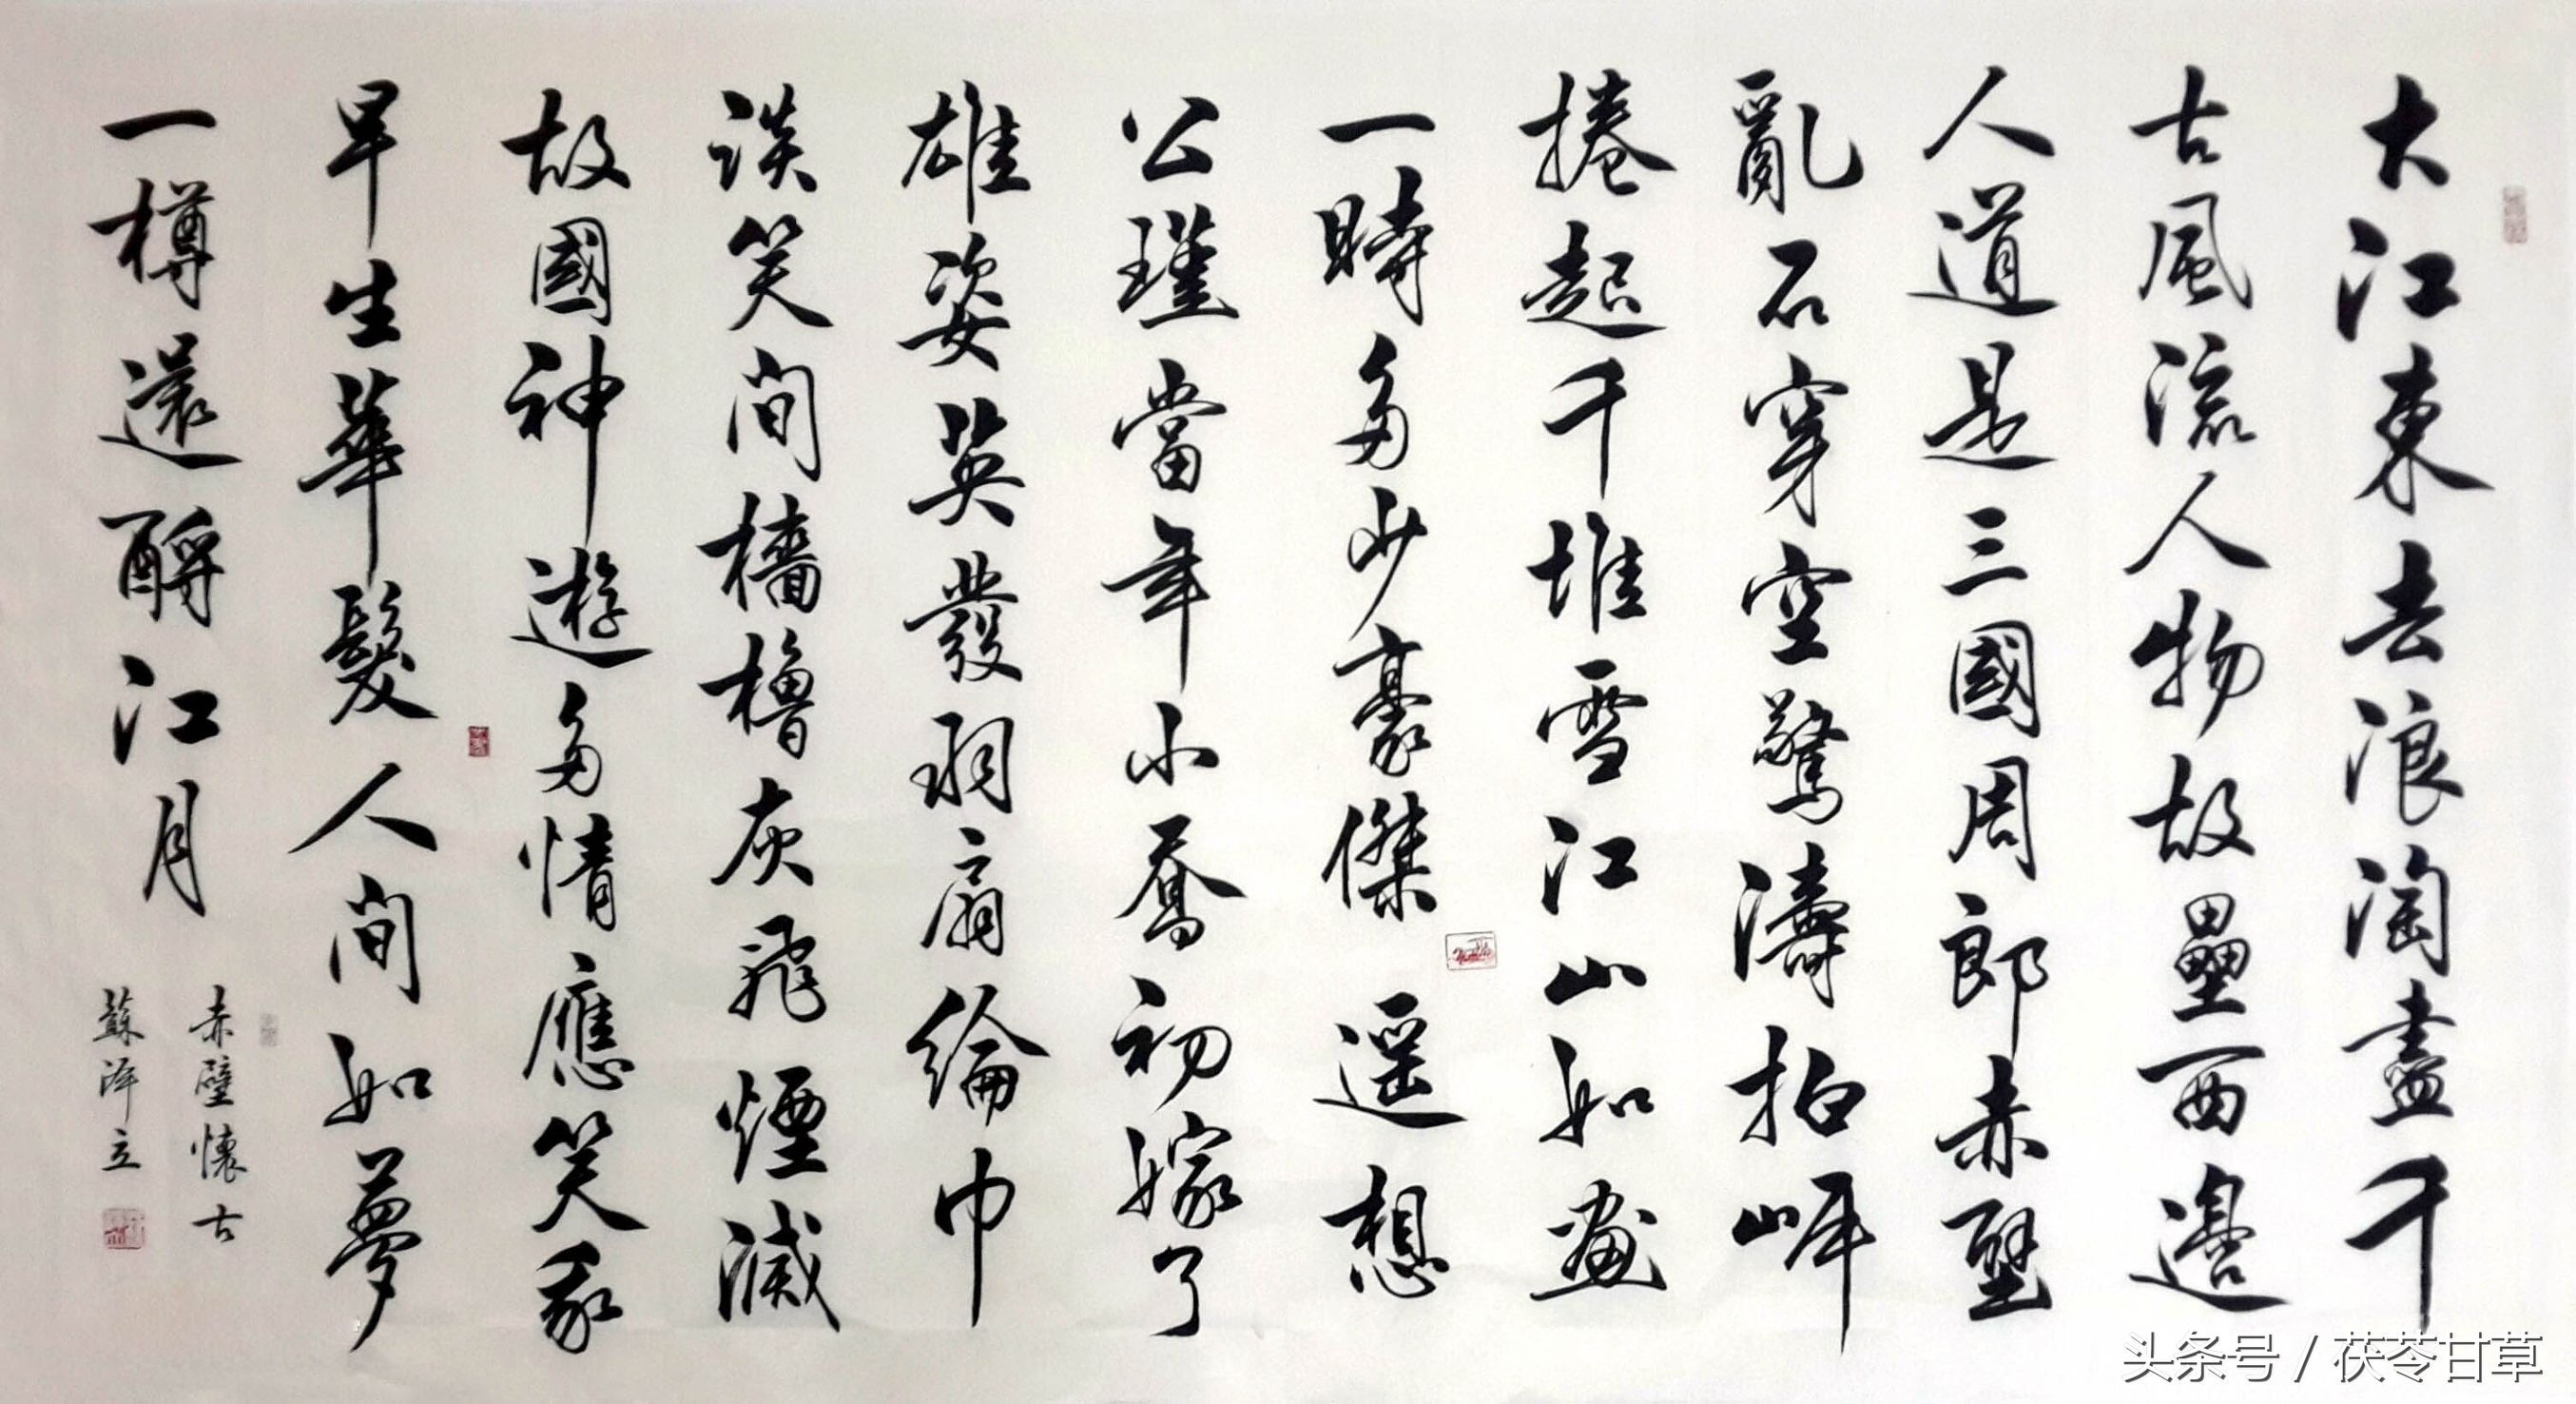 大江東去浪淘盡千
古風流人物故壘西邊
人道是三國周郎赤壁
亂石穿空驚濤拍岸
捲起千堆雪江山如畫
一時多少豪傑遥想
公瑾當年小喬初嫁了
雄姿英發羽扇綸巾
談笑間檣櫓灰飛煙滅
故國神遊多情應笑我
早生華髮人間如夢
一樽還酹江月
赤壁懷古
蘇澤立
头条号 / 茯苓甘草